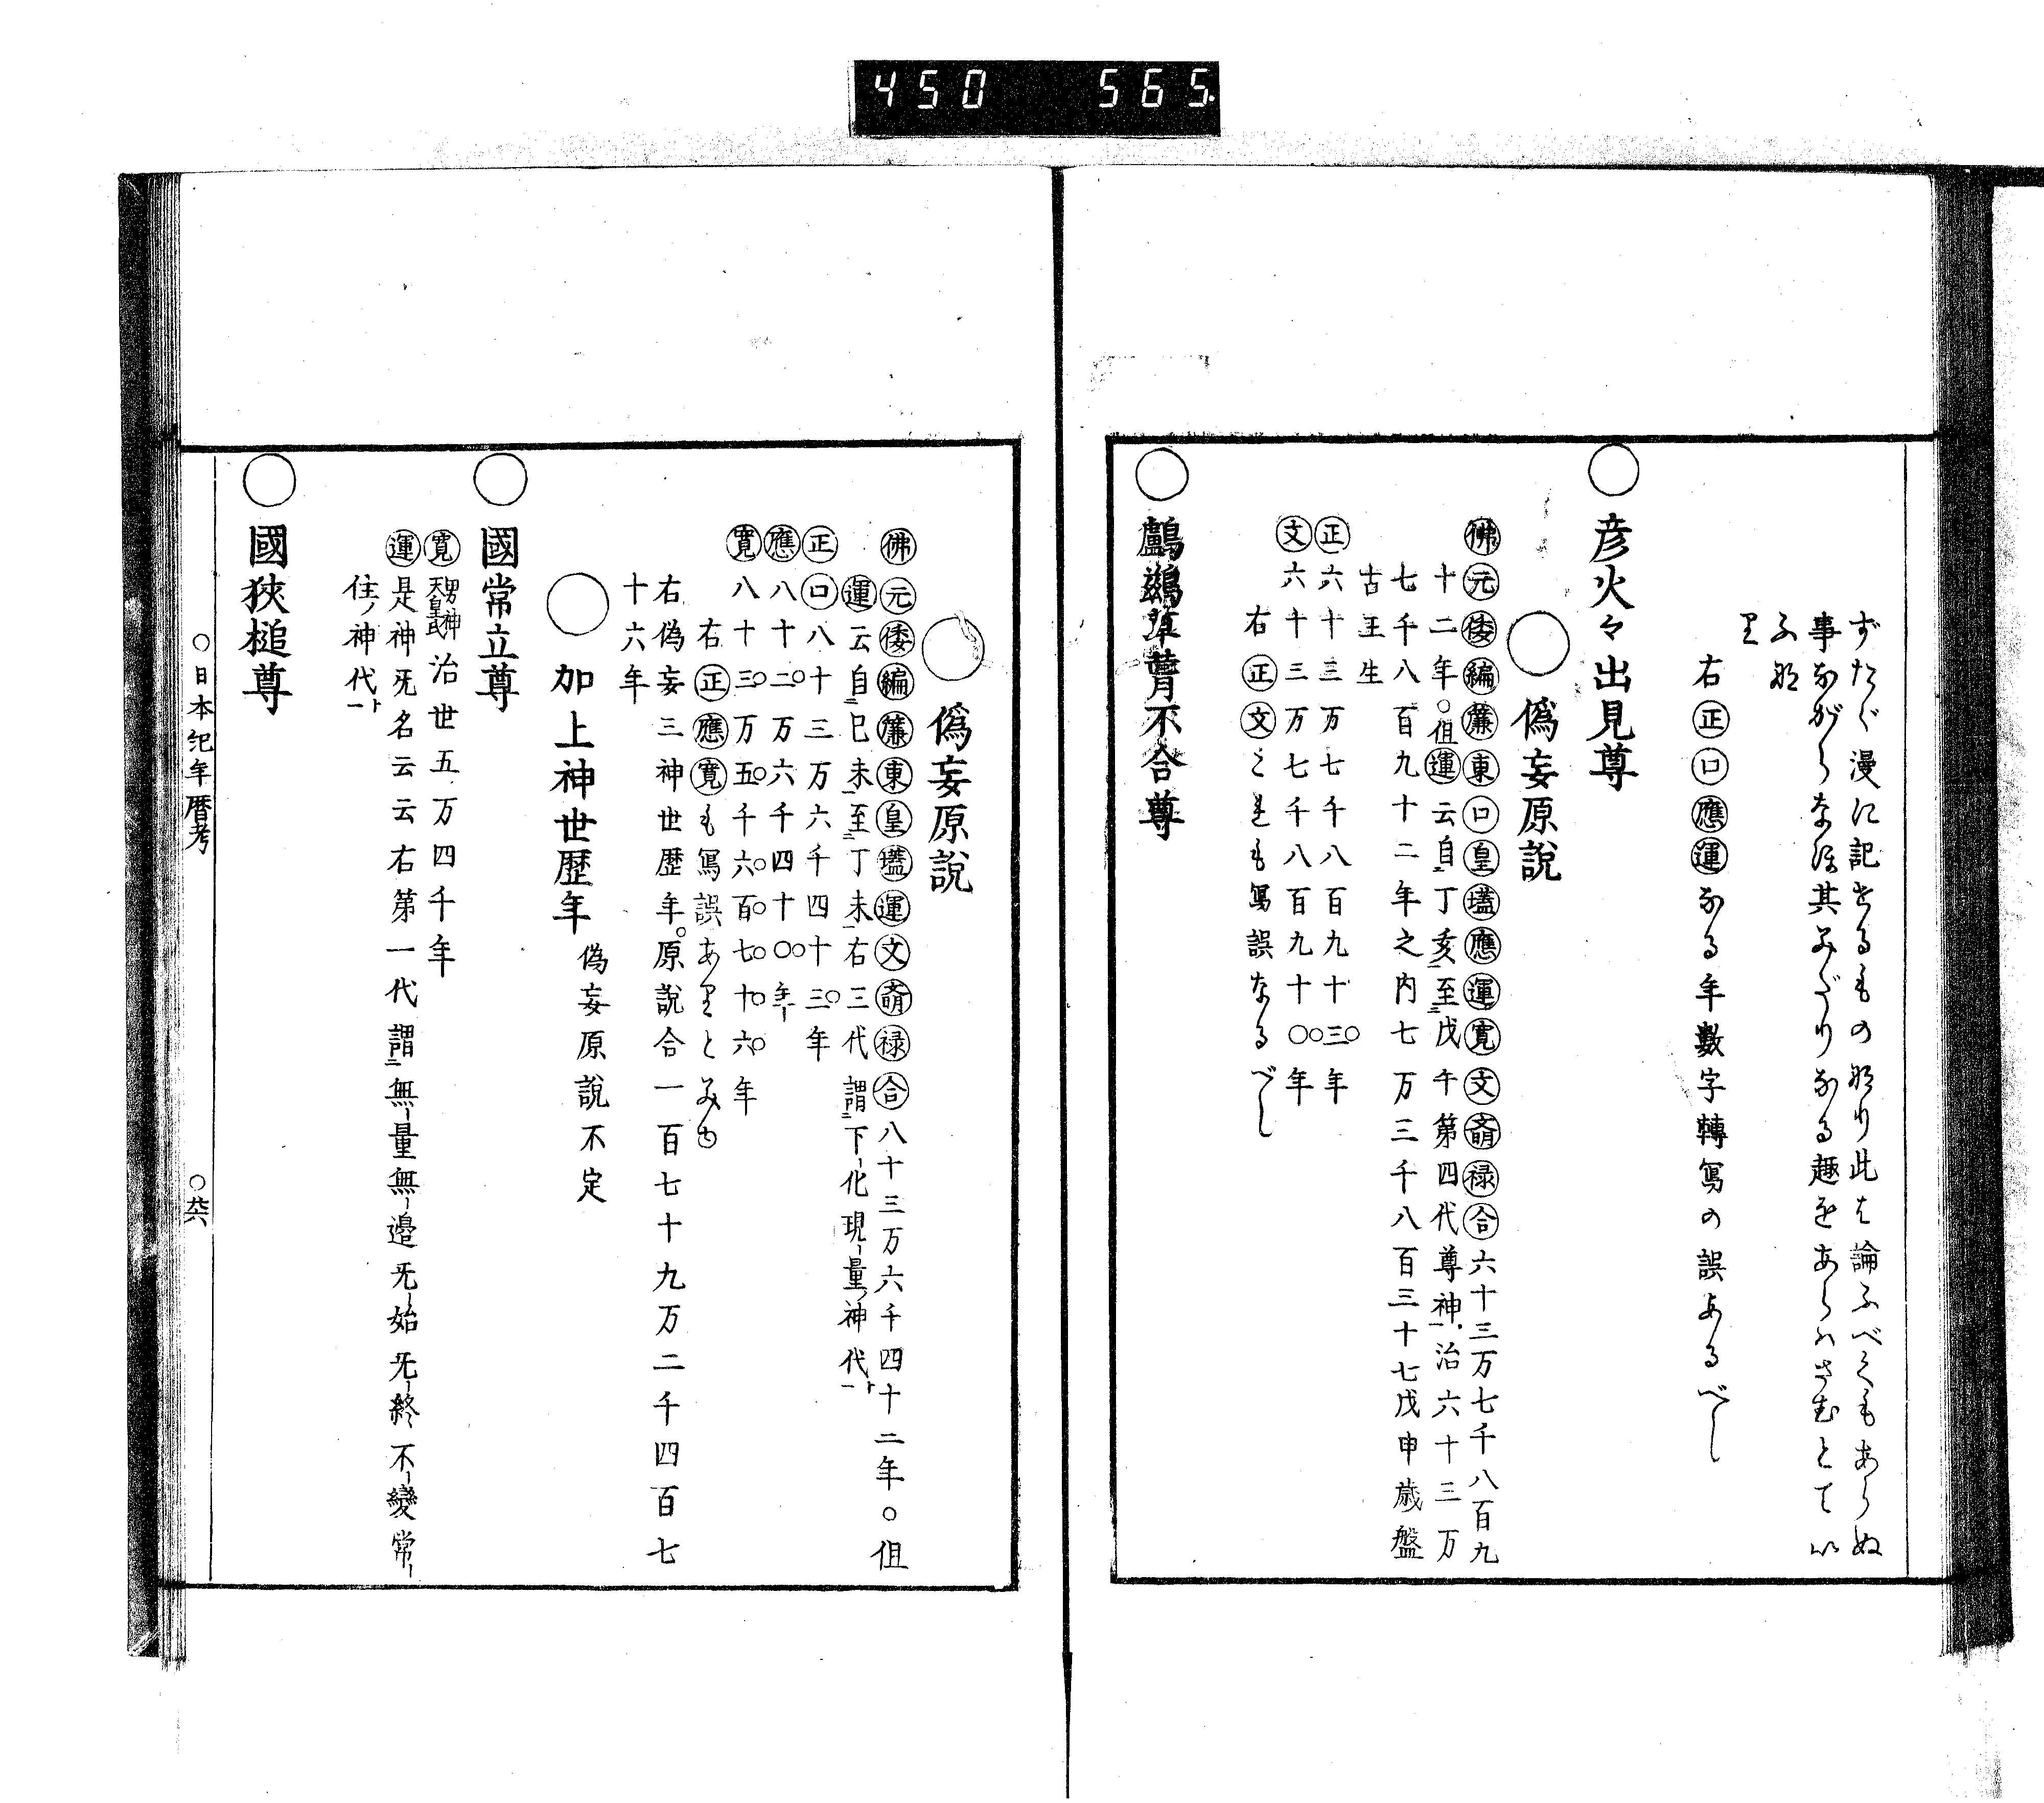 450 565
ずたゞ漫に記せるもの也此は論ふべくもあらぬ
事ながらなほ其みだりなる趣をあらはさむとてい
ふ也
右正口應運なる年數字轉寫の誤あるべし
○彦火々出見尊
○偽妄原説
佛元倭編簾東口皇壒應運寛文齋禄合六十三万七千八百九
十二年○但運云自丁亥至戊午第四代尊神治六十三万
七千八百九十二年之内七万三千八百三十七戊申歳盤
古王生
正六十三万七千八百九十三年
文六十三万七千八百九十〇年
右正文これも寫誤なるべし
○鸕鷀草葺不合尊
○偽妄原説
佛元倭編簾東皇壒運文齋禄合八十三万六千四十二年○但
運云自己未至丁未右三代謂下化現量神代
正口八十三万六千四十三年
應八十二万六千四十〇年
寛八十三万五千六百七十六年
右正應寛も寫誤ありと
右偽妄三神世歴年。原説合一百七十九万二千四百七
十六年
○加上神世歴年 偽妄原説不定
○國常立尊
寛 男神天皇氏 治世五万四千年
運是神旡名云云右第一代謂無量無邊旡始旡終不變常
住ノ神代ト
○國狹槌尊
○日本紀年暦考 ○廿六